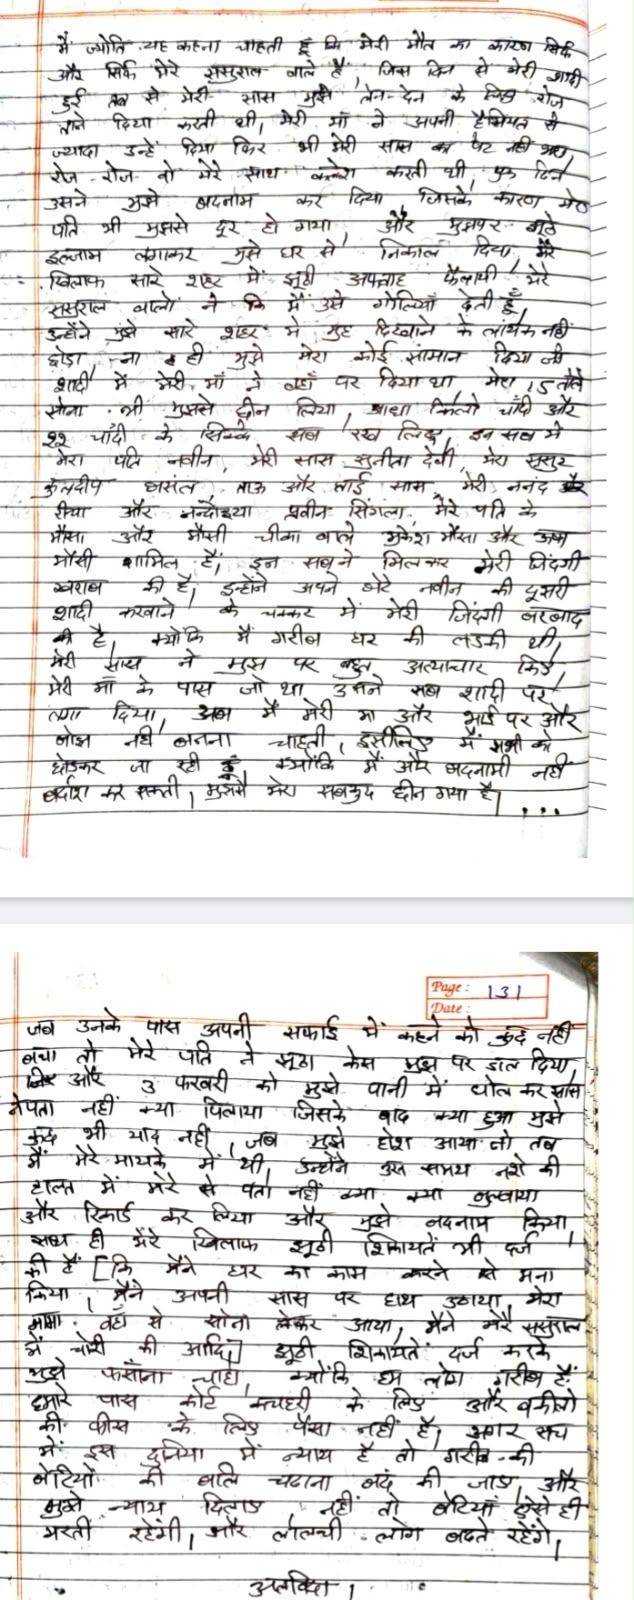 मैं ज्योति यह कहना चाहती हूँ कि मेरी मौत का कारण सिर्फ
और सिर्फ मेरे ससुराल वाले हैं, जिस दिन से मेरी शादी
हुई तब से मेरी सास मुझे लेन-देन के लिए रोज
ताने दिया करती थी, मेरी माँ ने अपनी हैसियत से
ज्यादा उन्हें दिया फिर भी मेरी सास का पेट नहीं भरा
रोज-रोज वो मेरे साथ कलेश करती थी, एक दिन
उसने मुझे बदनाम कर दिया जिसके कारण मेरा
पति भी मुझसे दूर हो गया और मुझपर झूठे
इल्जाम लगाकर मुझे घर से निकाल दिया, मेरे
खिलाफ सारे शहर में झूठी अफवाह फैलायी मेरे
ससुराल वालों ने कि मैं उसे गोलियाँ देती हूँ,
उन्होंने मुझे सारे शहर में मुंह दिखाने के लायक नहीं
छोड़ा ना ही मुझे मेरा कोई सामान दिया जो
शादी में मेरी माँ ने वहाँ पर दिया था मेरा 15 तोले
सोना भी मुझसे छीन लिया, आधा किलो चाँदी और
22 चाँदी के सिक्के सब रख लिए, इन सब में
मेरा पति नवीन, मेरी सास सुनीता देवी, मेरा ससुर
कुलदीप बासंल, ताऊ और ताई सास, मेरी ननंद
रीचा और नन्दोइया प्रवीन सिंगला, मेरे पति के
मौसा और मौसी चीका वाले मुकेश मौसा और
मौसी शामिल हैं, इन सबने मिलकर मेरी जिंदगी
खराब की है, इन्होंने अपने बेटे नवीन की दूसरी
शादी करवाने के चक्कर में मेरी जिंदगी बरबाद
की है, क्योंकि मैं गरीब घर की लडकी थी,
मेरी सास ने मुझ पर बहुत अत्याचार किए,
मेरी माँ के पास जो था उसने सब शादी पर
लगा दिया, अब मैं मेरी मा और भाई पर और
बोझ नहीं बनना चाहती, इसीलिए मैं सभी को
छोडकर जा रही हूँ क्योंकि मैं और बदनामी नहीं
बर्दाश कर सकती, मुझसे मेरा सबकुछ छीन गया है, ...
Page: 131
Date:
जब उनके पास अपनी सफाई में कहने को कुछ नहीं
बचा तो मेरे पति ने झूठा केस मुझ पर डाल दिया,
और 3 फरवरी को मुझे पानी में घोल कर सास
ने पता नहीं क्या पिलाया जिसके बाद क्या हुआ मुझे
कुछ भी याद नहीं, जब मुझे होश आया तो तब
मैं मेरे मायके में थी, उन्होंने उस समय नशे की
हालत में मेरे से पता नहीं क्या क्या बुलवाया
और रिकार्ड कर लिया और मुझे बदनाम किया,
साथ ही मेरे खिलाफ झूठी शिकायतें भी दर्ज
की हैं [कि मैंने घर का काम करने से मना
किया, मैंने अपनी सास पर हाथ उठाया, मेरा
मामा वहाँ से सोना लेकर आया, मैंने मेरे ससुराल
में चोरी की आदि] झूठी शिकायतें दर्ज करके
मुझे फसाना चाहा, क्योंकि हम लोग गरीब हैं
हमारे पास कोर्ट कचहरी के लिए और वकीलो
की फीस के लिए पैसा नहीं है, अगर सच
में इस दुनिया में न्याय है तो गरीब की
बेटियों की बलि चढाना बंद की जाए और
मुझे न्याय दिलाए नहीं तो बेटियाँ ऐसे ही
मरती रहेंगी, और लालची लोग बढते रहेंगे,
अलविदा।